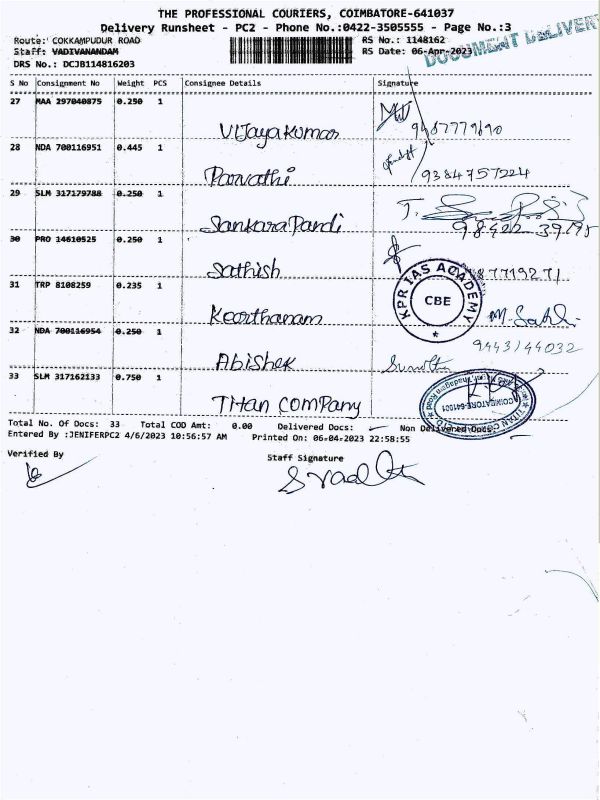 THE PROFESSIONAL COURIERS, COIMBATORE-641037
Delivery Runsheet - PC2 - Phone No.:0422-3505555 - Page No.:3
Route: COKKAMPUDUR ROAD RS No.: 1148162
Staff: VADIVANANDAM RS Date: 06-Apr-2023
DOCUMENT DELIVER
DRS No.: DCJB114816203
S No Consignment No Weight PCS Consignee Details Signature
27 MAA 297040875 0.250 1
Vijayakumar
28 NDA 700116951 0.445 1
Parvathi 9384757224
29 SLM 317179788 0.250 1
SankaraPandi
30 PRO 14610525 0.250 1
Sathish
31 TRP 8108259 0.235 1
KPR IAS ACADEMY CBE
Keerthanam
32 NDA 700116954 0.250 1
9443144032
Abishek
33 SLM 317162133 0.750 1
Titan Company
COIMBATORE-641001
Total No. Of Docs: 33 Total COD Amt: 0.00 Delivered Docs: Non Delivered Docs:
Entered By :JENIFERPC2 4/6/2023 10:56:57 AM Printed On: 06-04-2023 22:58:55
Verified By Staff Signature